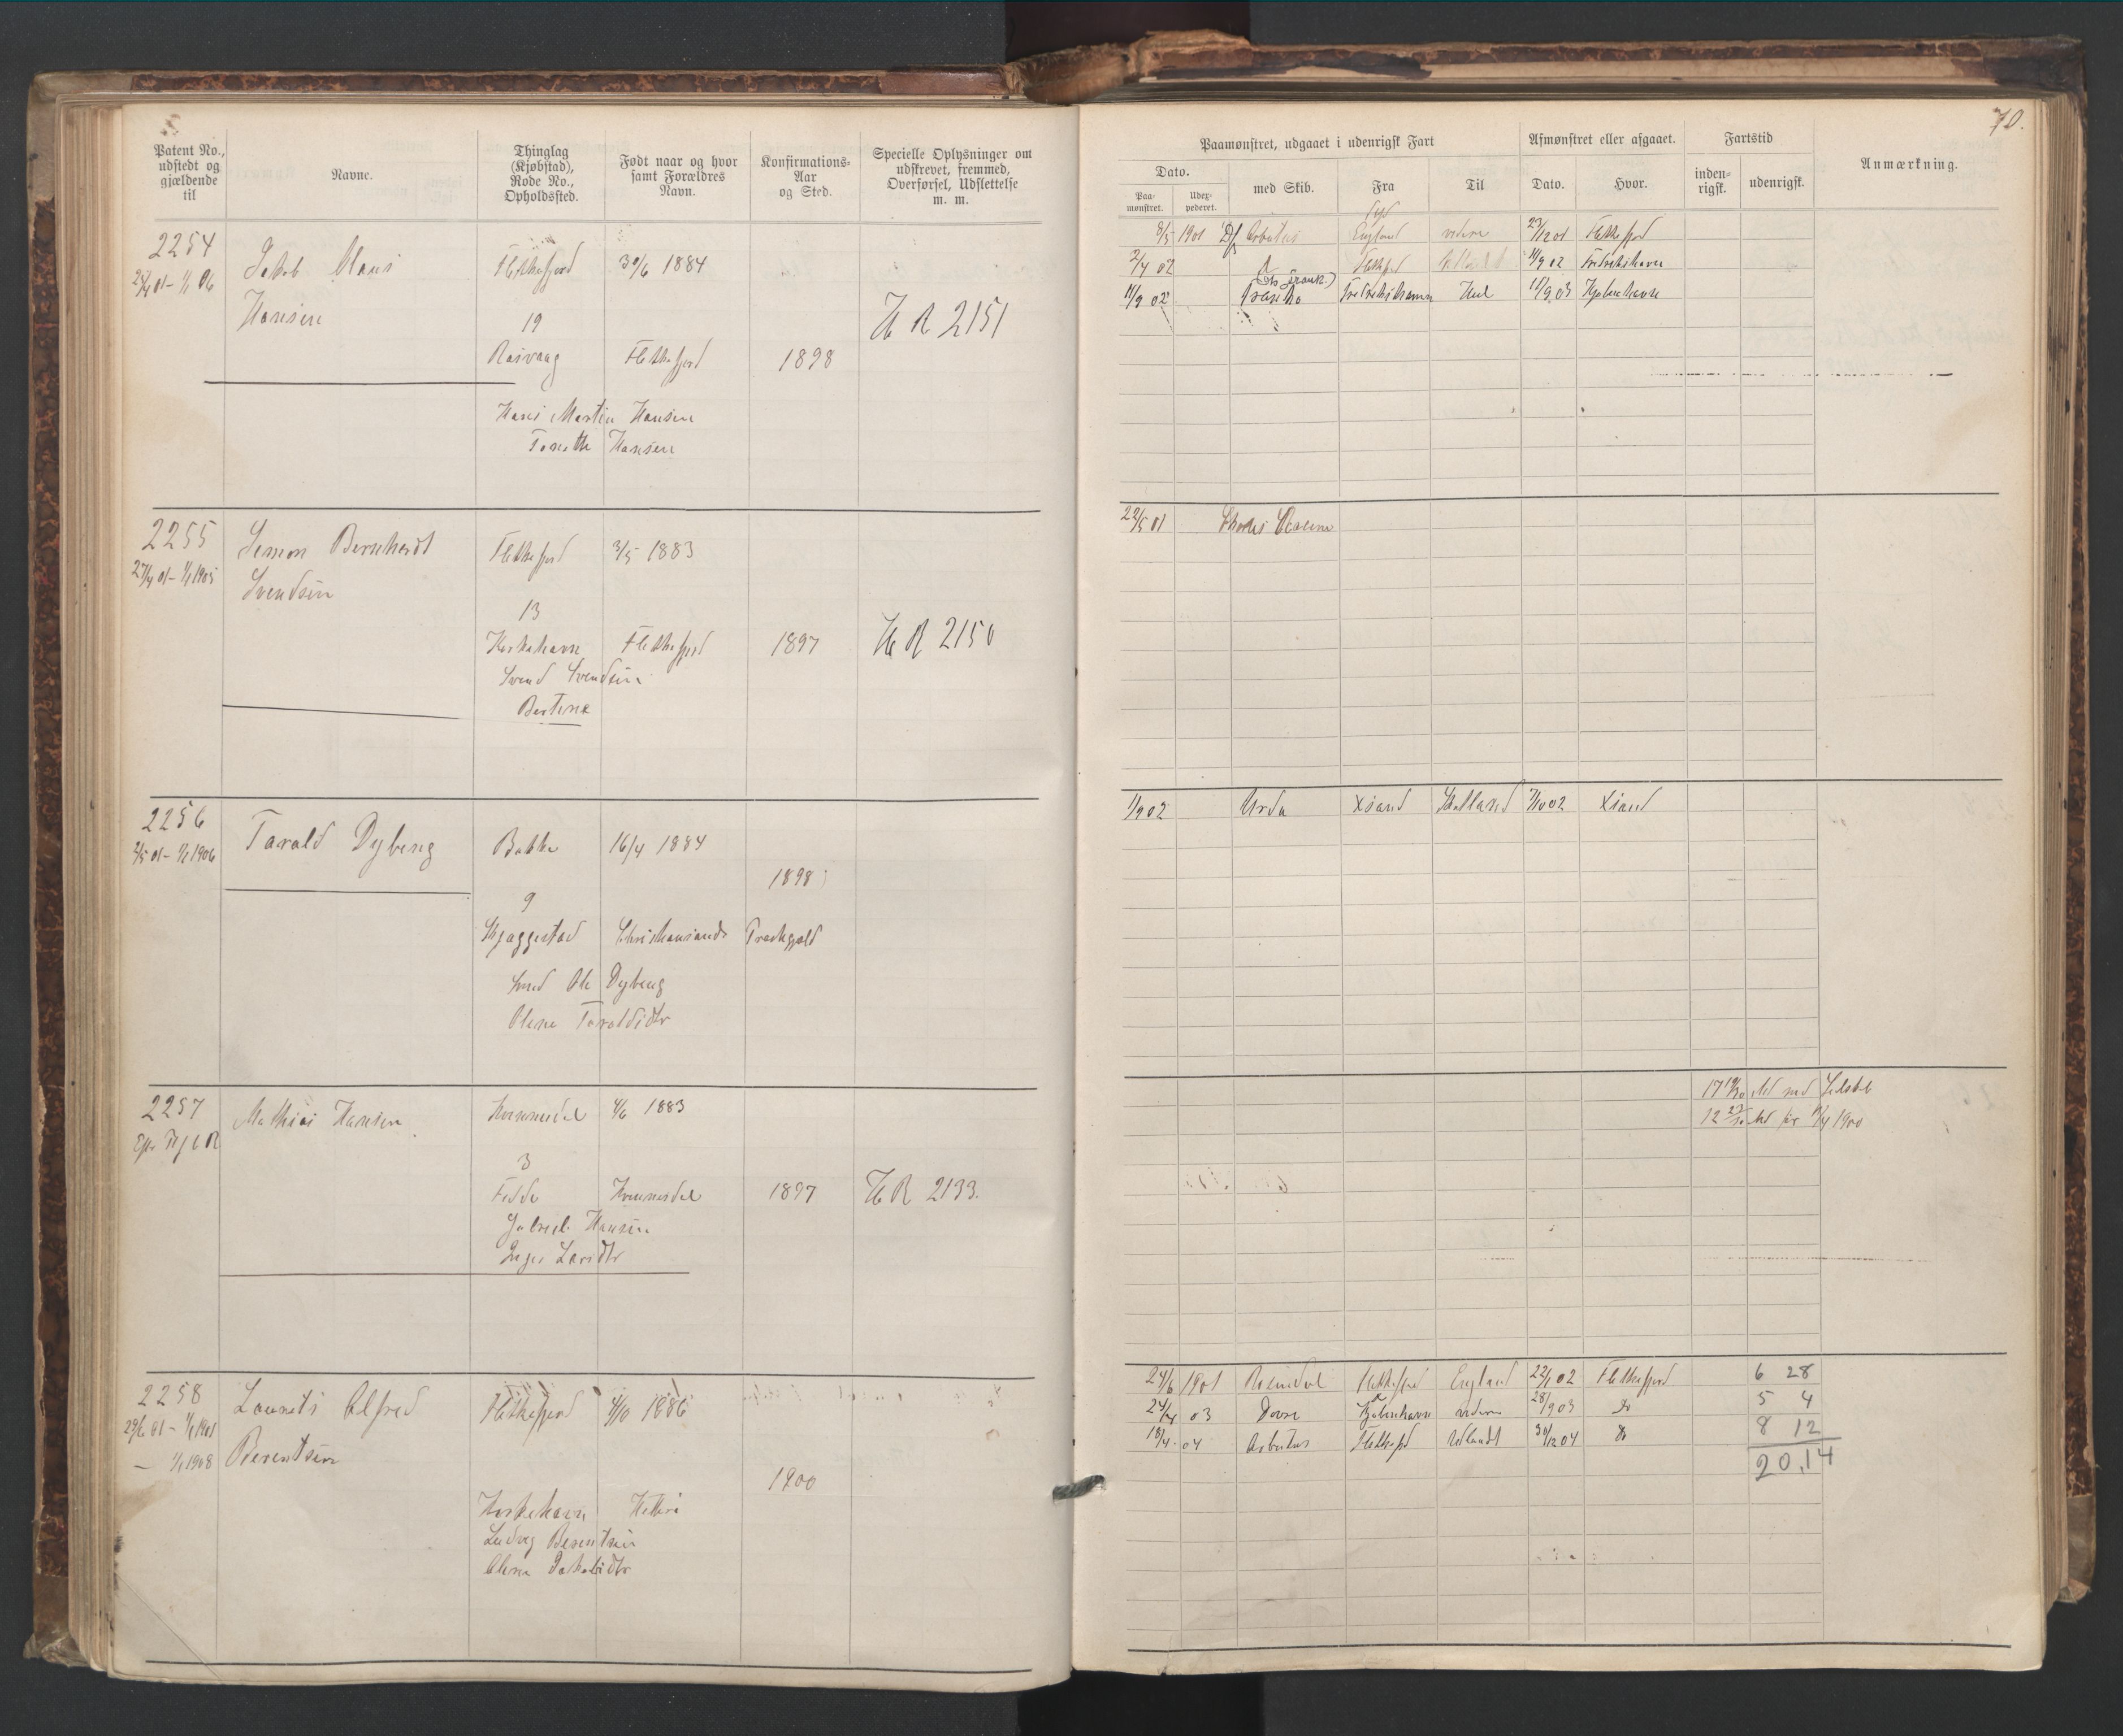 70.
Patent No., udstedt og gjældende til
Navne.
Thinglag (Kjøbstad), Rode No., Opholdssted.
Født naar og hvor samt Forældres Navn.
Konfirmations-Aar og Sted.
Specielle Oplysninger om udskrevet, fremmed, Overførsel, Udslettelse m. m.
Paamønstret, udgaaet i udenrigsk Fart
Dato.
Paa-mønstret.
Udex-pederet.
med Skib.
Fra
Til
Afmønstret eller afgaaet.
Dato.
Hvor.
Fartstid
inden-rigsk.
udenrigsk.
Anmærkning.
2254
27/4 01 – 1/1 06
Jakob Claus
Hansen
Flekkefjord 30/6 1884
19
Rasvaag Flekkefjord 1898
H R 2151
Hans Martin Hansen
Hansen
8/5 1901 Arbutus England videre 23/12 01 Flekkefjord
2/4 02 11/9 02 Fredrikshavn
11/9 02 Fredrikshavn Hul 11/9 03 Kjøbenhavn
2255
27/4 01 – 1/1 1905
Simon Bernhardt
Svendsen
Flekkefjord 3/5 1883
13
Kirkehavn Flekkefjord 1897
H R 2150
Svend Svendsen
Bertine
22/5 01
2256
2/5 01 – 1/1 1906
Tarald Dyberg
Bakke 16/4 1884
1898
9
Skjeggestad Christiansands
Ole Dyberg
Olene Taraldsdtr
1/9 02 Urda Xsand Skotland 7/10 02 Xsand
2257
Mathias Hansen
Kvinesdal 4/6 1883
3
Fedde Kvinesdal 1897
H R 2133.
Gabriel Hansen
Inger Larsdtr
17 19/30 Md med
12 27/30 Md før 1900
2258
29/6 01 – 1/1 1901
— 1/1 1908
Laurits Alfred
Berentsen
Flekkefjord 4/10 1886
1900
Kirkehavn Hitterø
Ludvig Berentsen
Olene Jakobsdtr
24/6 1901 Rosendal Flekkefjord England 22/1 02 Flekkefjord 6 28
24/4 03 Dovre Kjøbenhavn videre 28/9 03 Do 5 4
18/4 04 Arbutus Flekkefjd Udlandt 30/12 04 Do 8 12
20.14